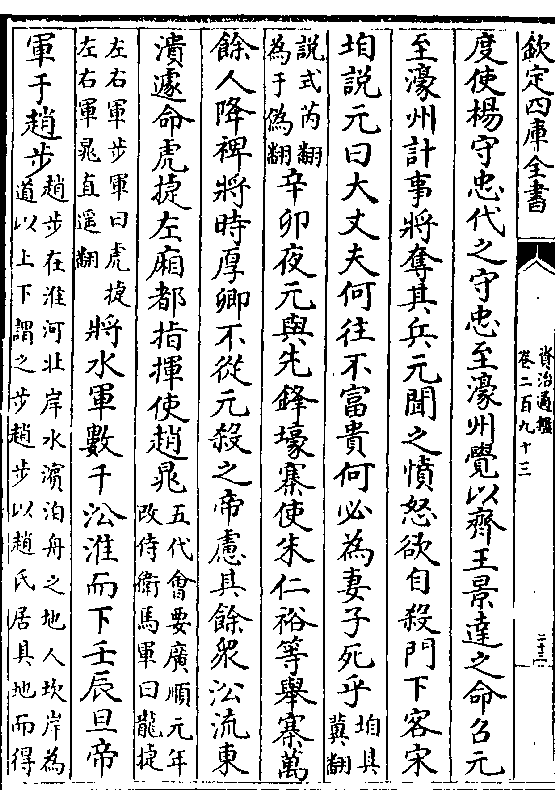 欽定四庫全書
資治通鑑
卷二百九十三
二十三
度使楊守忠代之守忠至濠州覺以齊王景達之命召元
至濠州計事將奪其兵元聞之憤怒欲自殺門下客宋
垍說元曰大丈夫何往不富貴何必為妻子死乎垍具
冀翻
說式芮翻
為于偽翻辛卯夜元與先鋒壕寨使朱仁裕等舉寨萬
餘人降裨將時厚卿不從元殺之帝慮其餘衆㳂流東
潰遽命虎捷左廂都指揮使趙晁五代會要廣順元年
改侍衛馬軍曰龍捷
左右軍步軍曰虎捷
左右軍晁直遥翻將水軍數千㳂淮而下壬辰旦帝
軍于趙步趙步在淮河北岸水濱泊舟之地人坎岸為
道以上下謂之步趙步以趙氏居其地而得